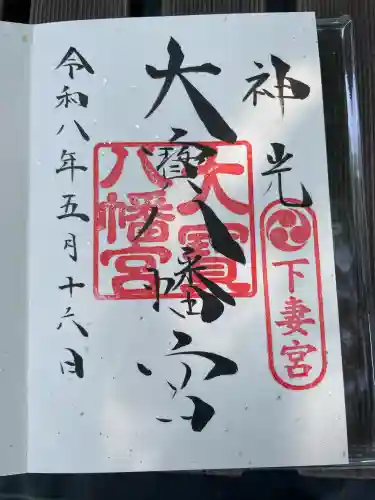 神光
下妻宮
大寳八幡宮
大寳八幡宮
令和八年五月十六日